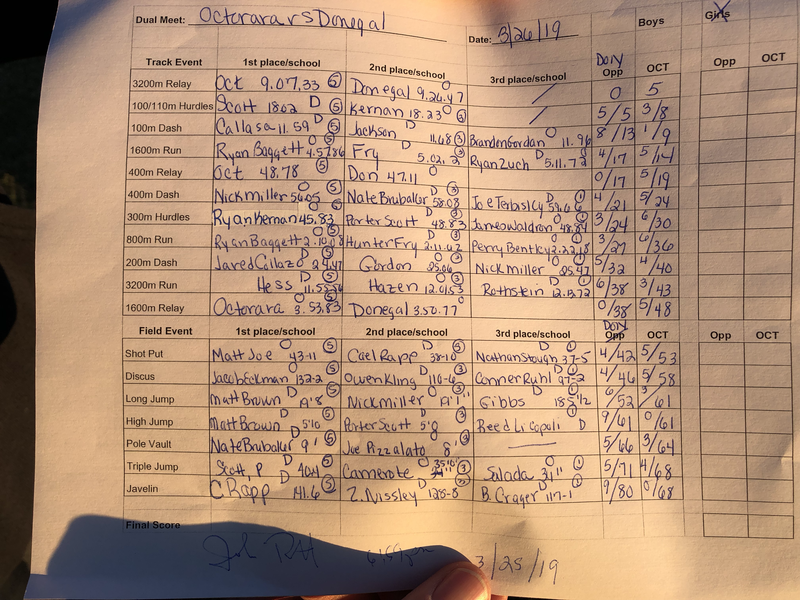 Dual Meet: Octorara vs Donegal Date: 3/26/19 Boys Girls
Track Event 1st place/school 2nd place/school 3rd place/school Don Opp OCT Opp OCT
3200m Relay Oct 9.07.33 5 Donegal 9.26.47 / 0 5
100/110m Hurdles Scott 18.02 D 5 Kernan 18.23 O 3 / 5/5 3/8
100m Dash Callasa 11.59 D 5 Jackson D 11.68 3 Brandon Gordan O 11.96 8/13 1/9
1600m Run Ryan Baggett O 5 4.57.86 Fry D 5.02.2 3 Ryan Zuch D 5.11.72 4/17 5/14
400m Relay Oct 48.78 5 Don 47.11 0/17 5/19
400m Dash Nick Miller O 5 56.05 Nate Brubaker D 3 58.08 D 1 4/21 5/24
300m Hurdles Ryan Kernan O 5 45.83 Porter Scott D 3 48.83 James Waldron O 1 48.84 3/24 6/30
800m Run Ryan Baggett O 5 2.10.08 Hunter Fry D 3 2.11.62 Perry Bentley O 1 2.22.18 3/27 6/36
200m Dash Jared Collazo D 5 24.47 Gordon O 3 25.06 Nick Miller O 1 25.47 5/32 4/40
3200m Run Hess D 5 Hazen O 3 12.01.53 Rothstein D 1 12.13.72 6/38 3/43
1600m Relay Octorara O 5 3.53.83 Donegal 3.50.77 0/38 5/48
Field Event 1st place/school 2nd place/school 3rd place/school Don Opp OCT Opp OCT
Shot Put Matt Joe O 5 43-11 Cael Rapp D 38-10 Nathan Stough D 1 37-5 4/42 5/53
Discus Jacob Eckman O 5 132-2 Owen Kling D 3 110-6 Conner Ruhl D 1 97-2 4/46 5/58
Long Jump Matt Brown D 5 19'8 Nick Miller O 3 19'1" Gibbs D 1 18 5 1/2 6/52 3/61
High Jump Matt Brown D 5 5'10 Porter Scott D 3 5'8 Reed Li Capoli D 1 9/61 0/61
Pole Vault Nate Brubaker D 5 9' Joe Pizzalato O 3 8' — 5/66 3/64
Triple Jump Scott, P D 5 Camerote O 3 Salada O 1 5/71 4/68
Javelin C Rapp D 5 141.6 Z. Nissley D 128-8 B. Crager D 1 117-1 9/80 0/68
Final Score
3/25/19